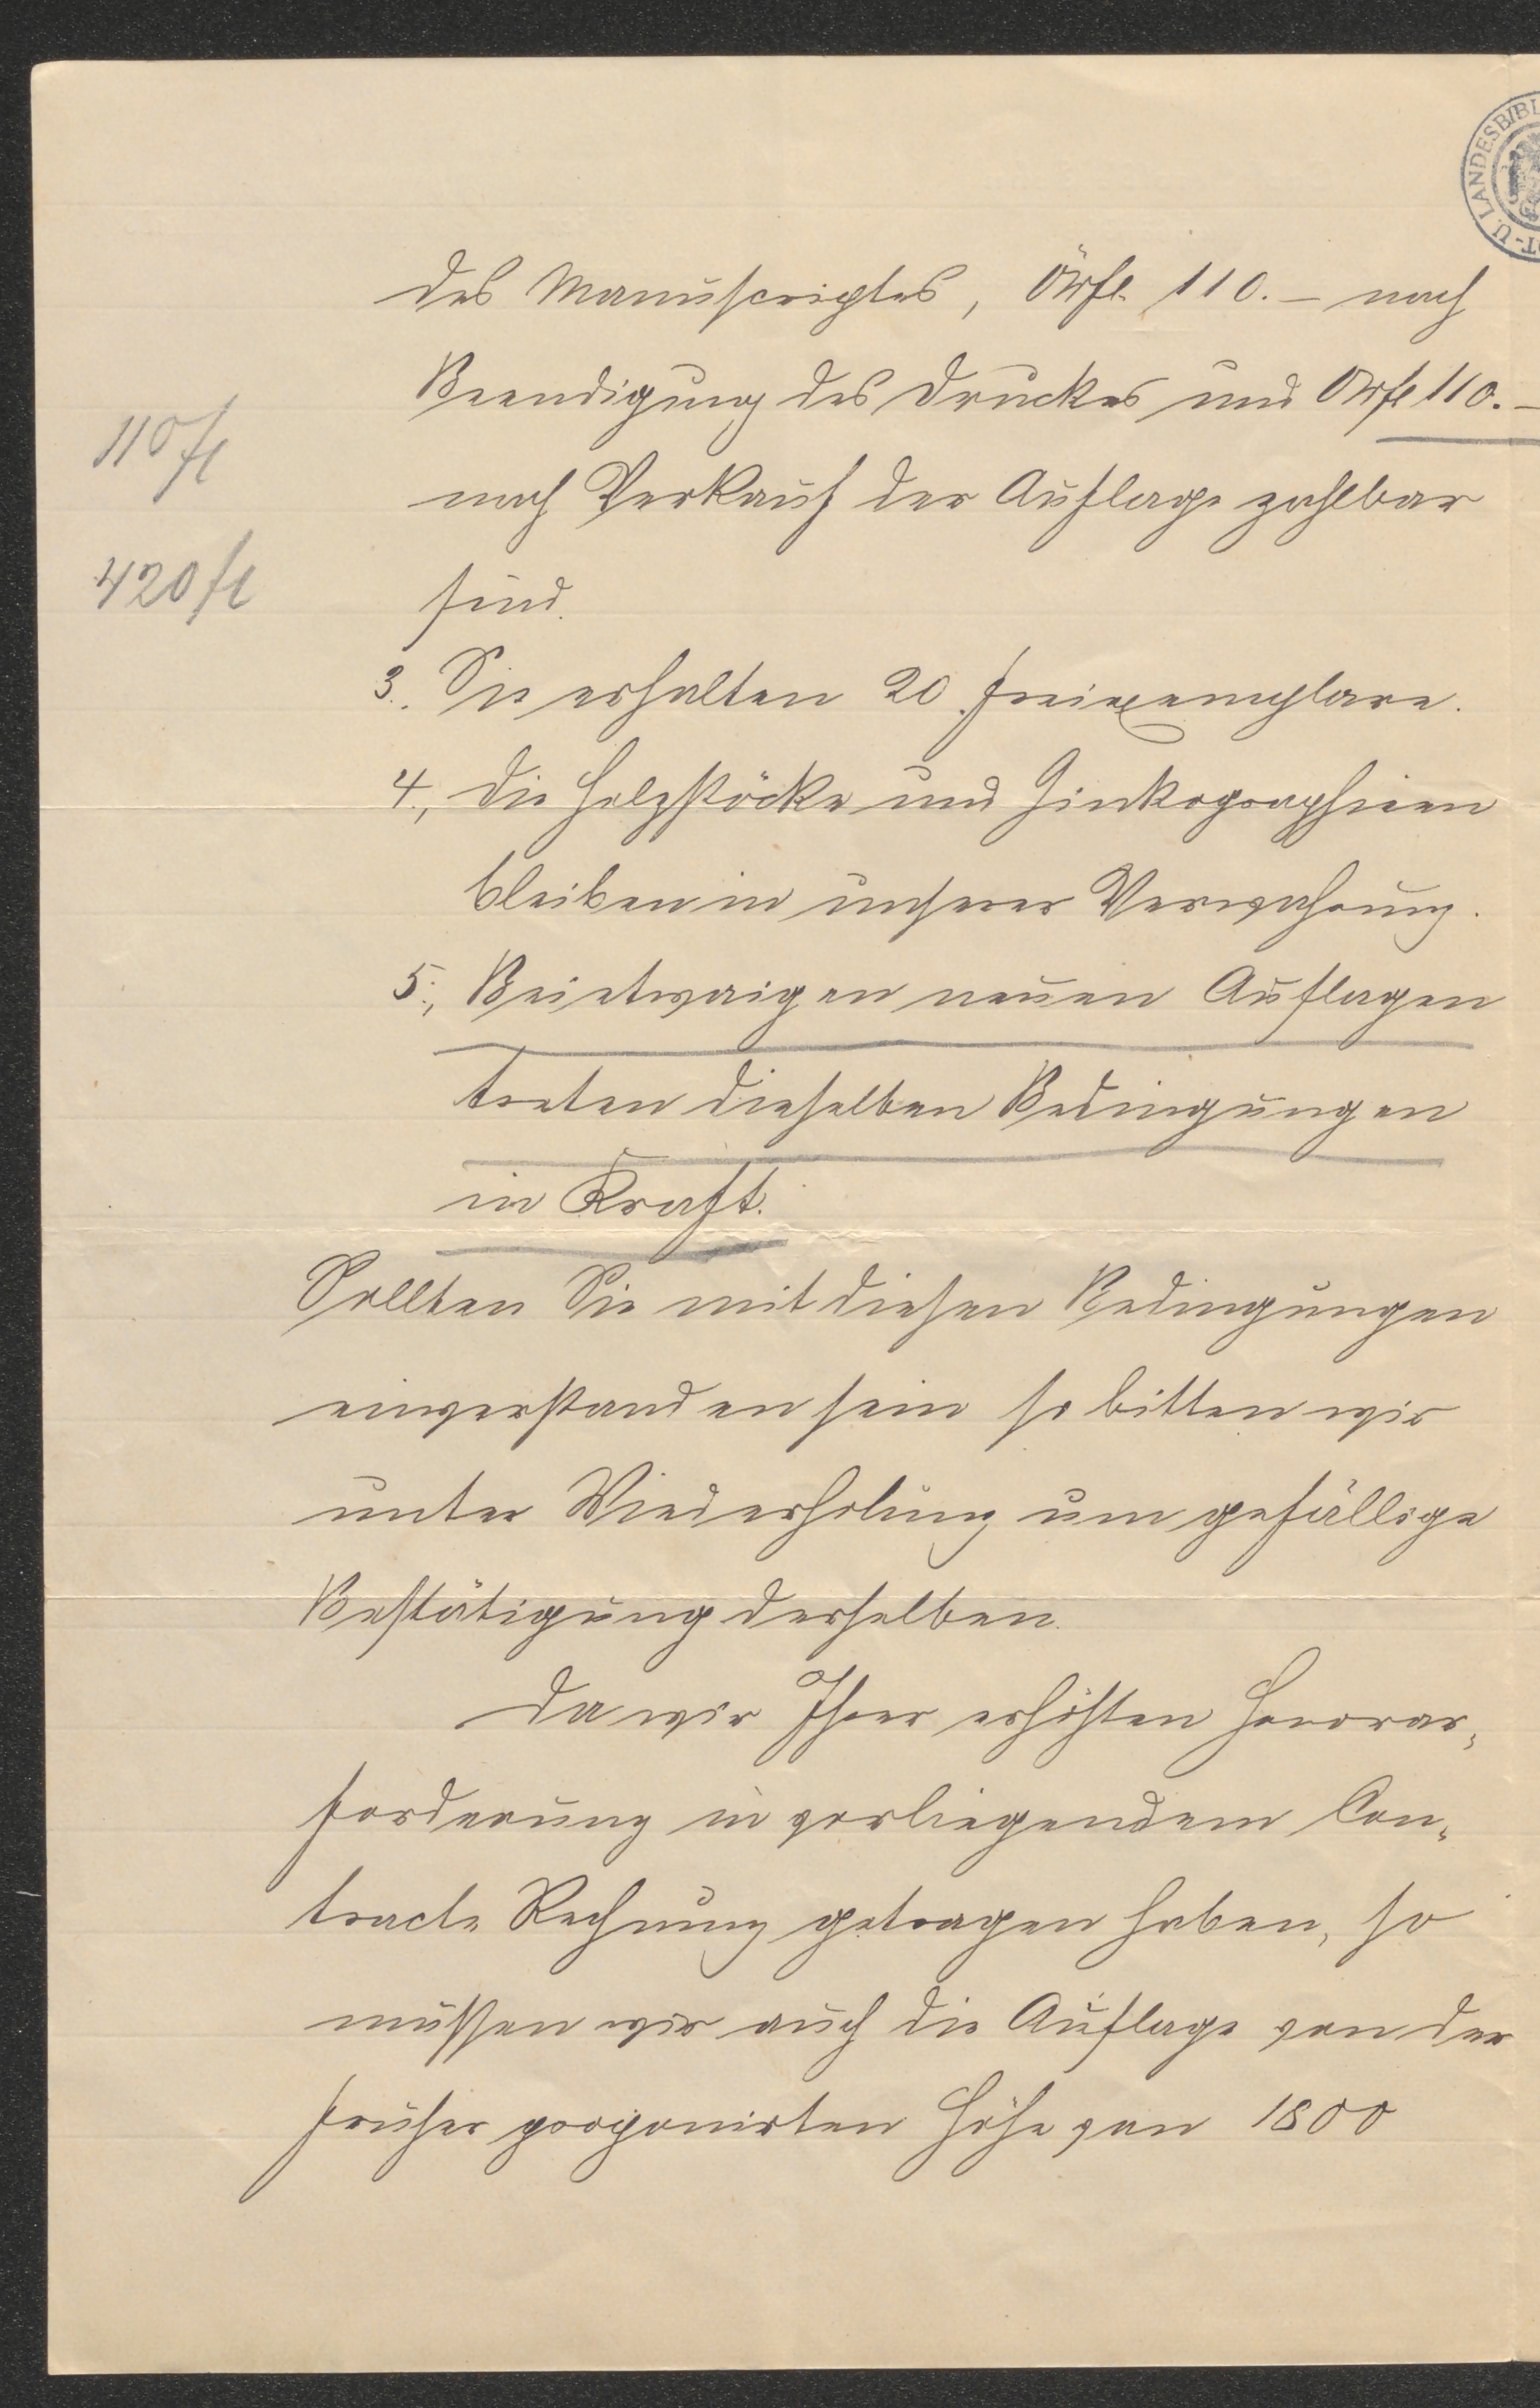 des Manuscriptes, ÖWfl. 110.– nach
Beendigung des Druckes und ÖWfl 110.–
nach Verkauf der Auflage zahlbar
sind.
110 fl
420 fl
3. Sie erhalten 20 Freiexemplare.
4., Die Holzstöcke und Zinkographieen
bleiben in unserer Verwahrung.
5., Bei etwaigen neuen Auflagen
treten dieselben Bedingungen
in Kraft.
Sollten Sie mit diesen Bedingungen
einverstanden sein so bitten wir
unter Wiederholung um gefällige
Bestätigung derselben.
Da wir Ihrer erhöhten Honorar-
forderung in vorliegendem Con-
tracte Rechnung getragen haben, so
müssen wir auch die Auflage von der
früher proponirten Höhe von 1800
T-U. LANDESBIBL